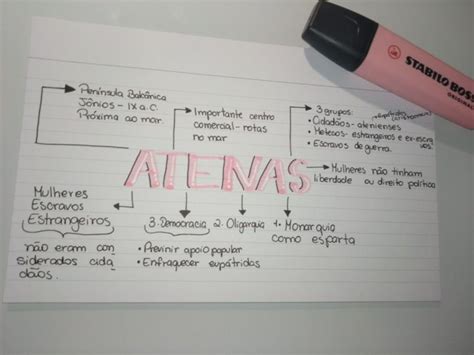 STABILO BOSS
ORIGINAL
Península Balcânica
Jônios - IX a.C.
Próxima ao mar
Importante centro
comercial - rotas
no mar
3 grupos:
• Cidadãos - atenienses
• Metecos - estrangeiros e ex-escra
vos.
• Escravos de guerra.
ATENAS
Mulheres não tinham
liberdade ou direito político
Mulheres
Escravos
Estrangeiros
não eram con
siderados cida
dãos.
3. Democracia
• Previnir apoio popular
• Enfraquecer eupátridas
2. Oligarquia
1. Monarquia
como esparta